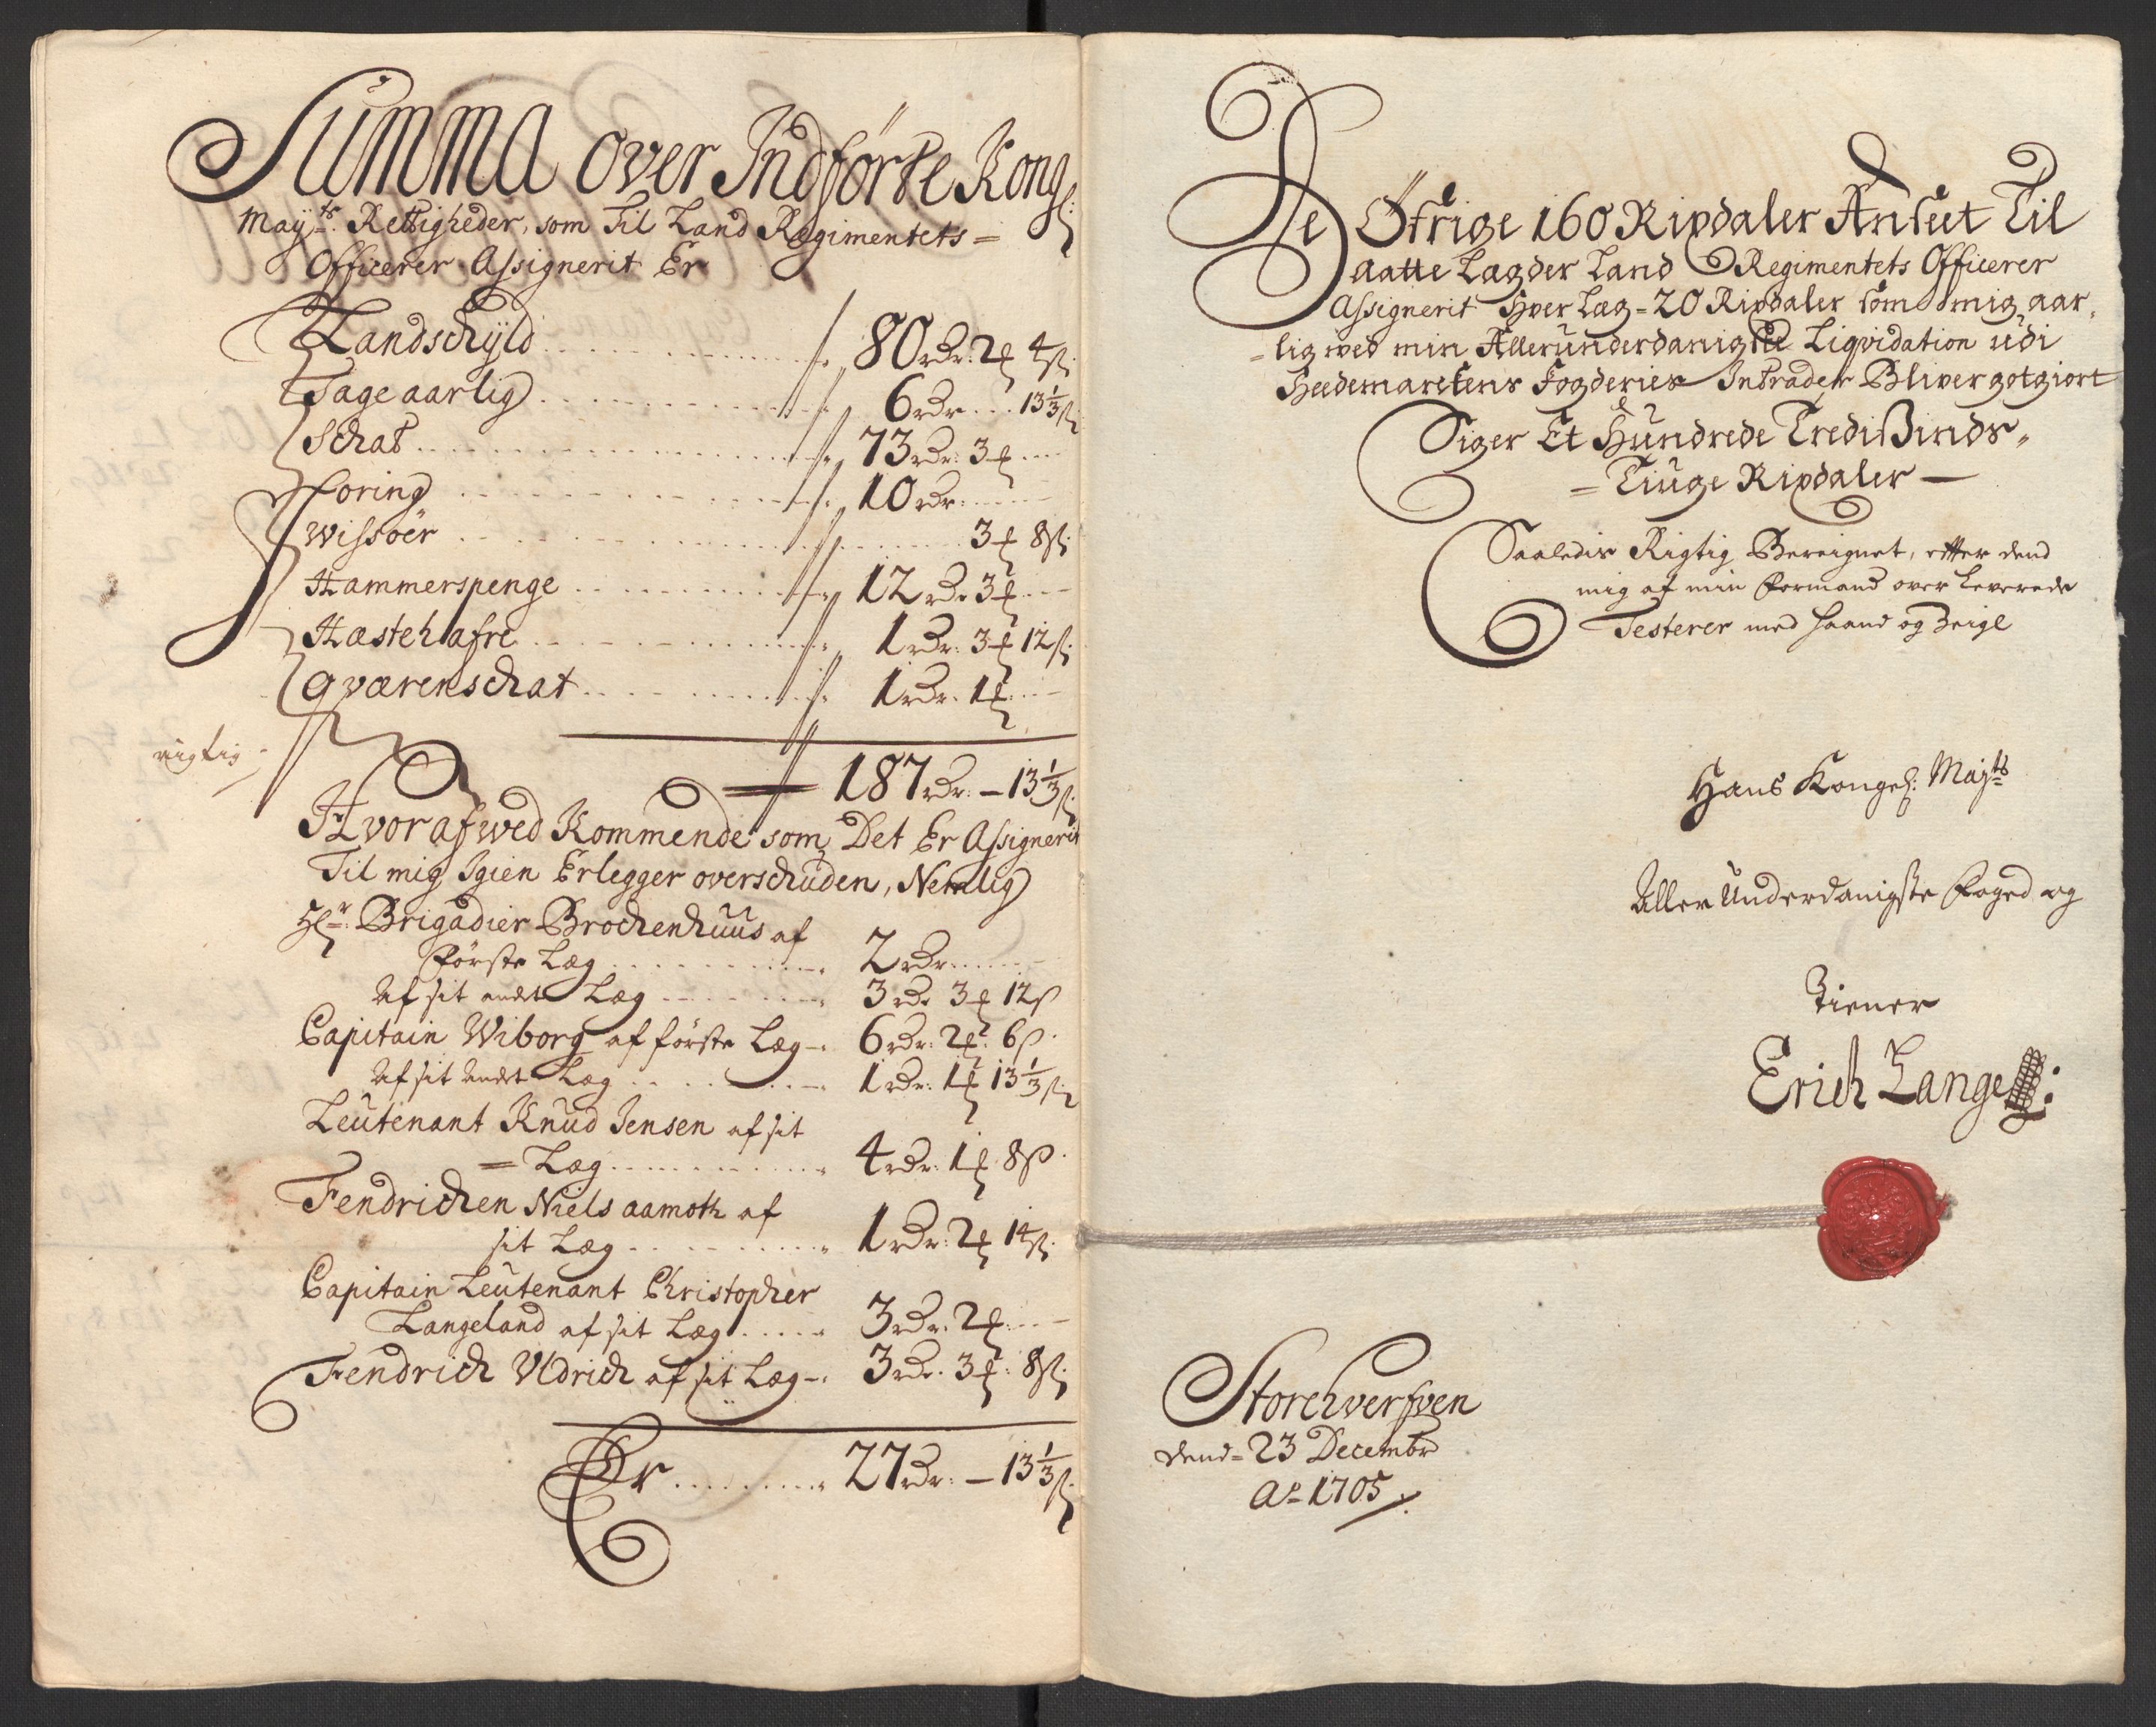 Summa over Indförte Kong:
Mayts. Rettigheder, som Til Land Regimentets=
Officerer Assignerit Er
Landschyld 80 rdr: 2 ℔ 4 β:
Tage aarlig 6 rdr 13 1/3 β:
Schat 73 rdr: 3 ℔
foring 10 rdr:
Wissöer 3 ℔ 8 β:
Hammerspenge 12 rdr 3 ℔
Hæstehafre 1 rdr: 3 ℔ 12 β:
Qværenschat 1 rdr. 1 ℔:
rigtig
187 rdr: - 13 1/3 β:
Hvor af wed Kommende som Det Er Assignerit
Til mig Igien Erlegger overschuden, Nemlig
Hr: Brigadier Brochenhuus af
Förste Læg 2 rdr
Af sit andet Læg 3 rdr 3 ℔ 12 β
Capitain Wiborg af förste Læg 6 rdr: 2 ℔: 6 β.
Af sit Andet Læg 1 rdr: 1 ℔ 13 1/3 β:
Leutenant Knud Jensen af sit
= Læg 4 rdr: 1 ℔ 8 β.
Fendrichen Niels aamoth af
sit Læg 1 rdr: 2 ℔ 14 β:
Capitain Leutenant Christopher
Langeland af sit Læg 3 rdr. 2 ℔:
Fendrich Uldrich af sit Læg 3 rdr. 3 ℔: 8 β:
Er 27 rdr: - 13 1/3 β:
De Öfrige 160 Rixdaler Anseet Til
aatte Lægder Land Regimentets Officerer
Assignerit Hver Læg = 20 Rixdaler som mig aar,
= lig wed min Allerunderdanigste Liqvidation udi
Heedemarckens Fogderies Intrader Bliver gotgiort
Siger Et Hundrede Tredißinds,
= Tiuge Rixdaler -
Saaledis Rigtig Bereignet, efter dend
mig af min Formand over Leverede
Testerer med Haand og Zeigl
Hans Kongel: Mayts
Aller Underdanigste Foged og
Tiener
Erich Lange:
Storchversven
dend= 23 Decembr
Ao 1705